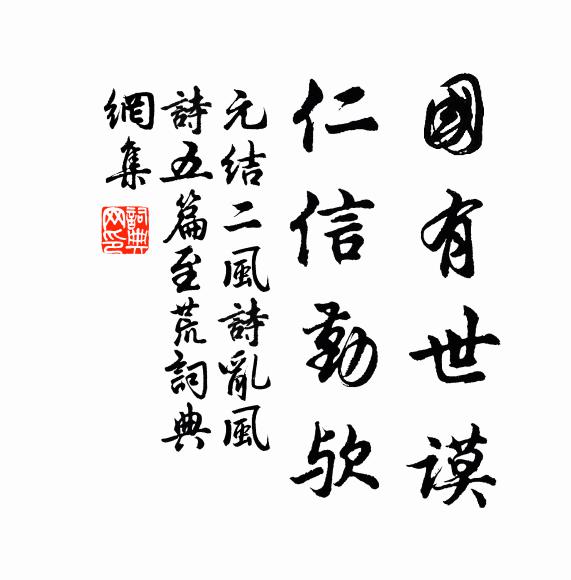 國有世謨
仁信勤歟
元结二風詩亂風
詩五篇至荒詞典
網集
詞典
网印